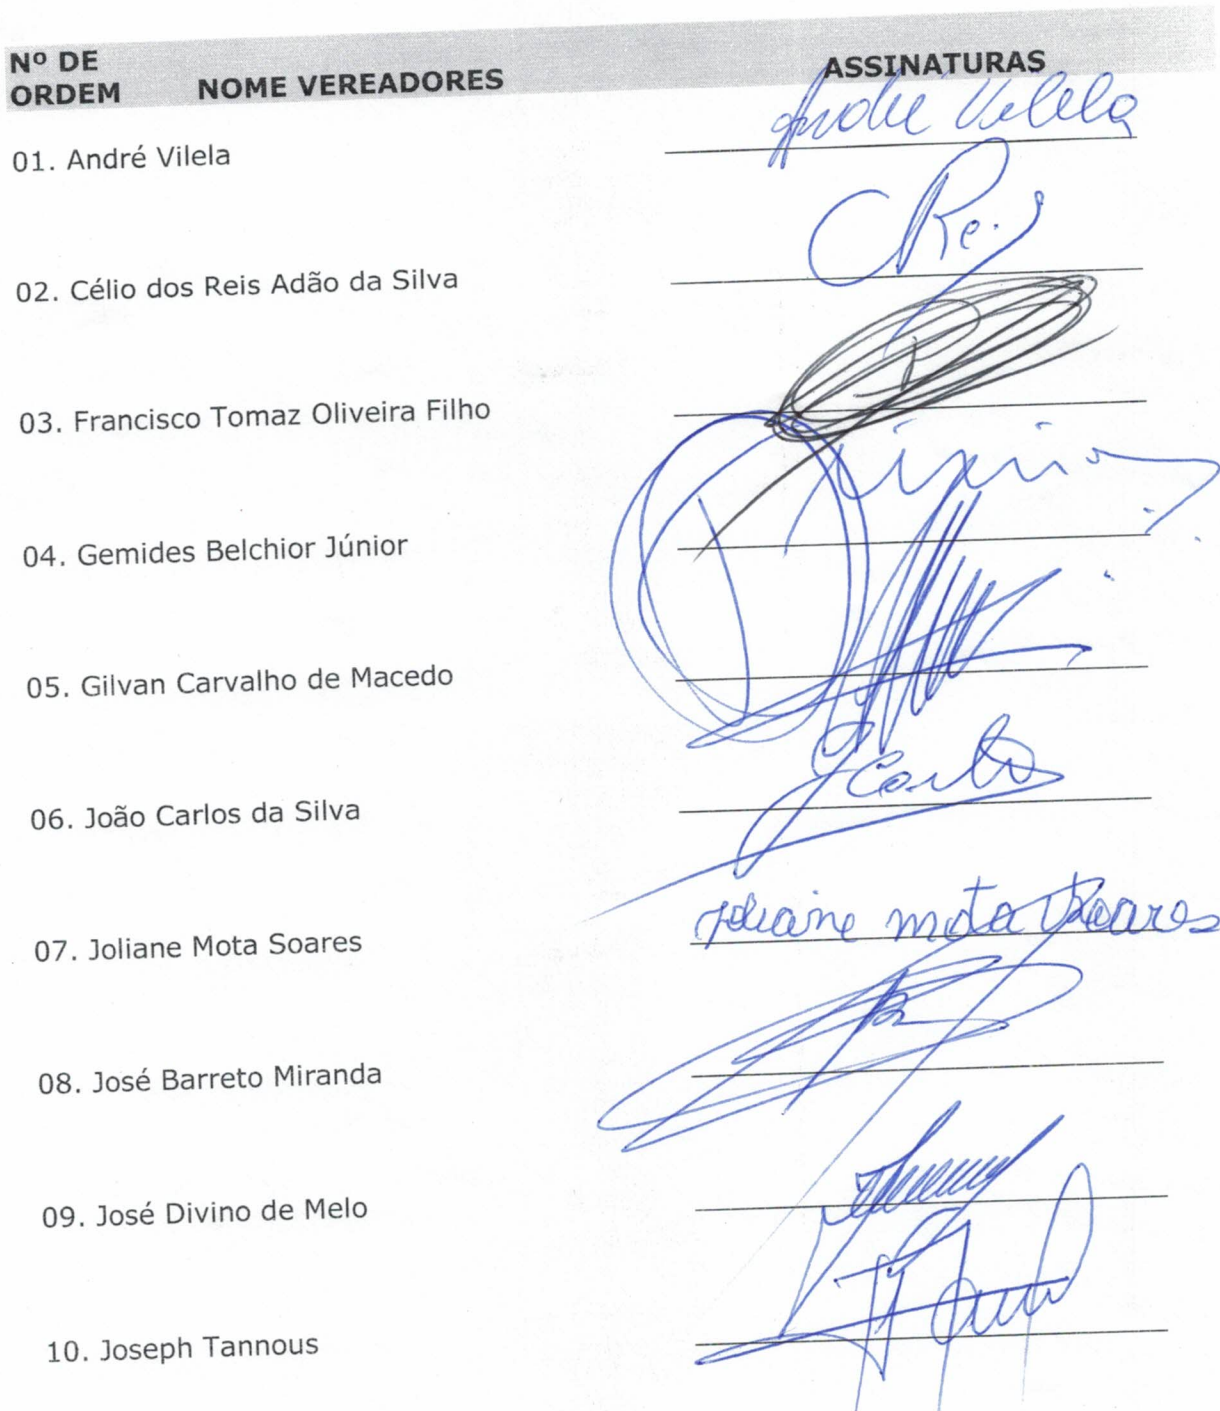 Nº DE
ORDEM NOME VEREADORES ASSINATURAS
André Vilela
01. André Vilela
02. Célio dos Reis Adão da Silva
03. Francisco Tomaz Oliveira Filho
04. Gemides Belchior Júnior
05. Gilvan Carvalho de Macedo
06. João Carlos da Silva
Joliane Mota Soares
07. Joliane Mota Soares
08. José Barreto Miranda
09. José Divino de Melo
10. Joseph Tannous